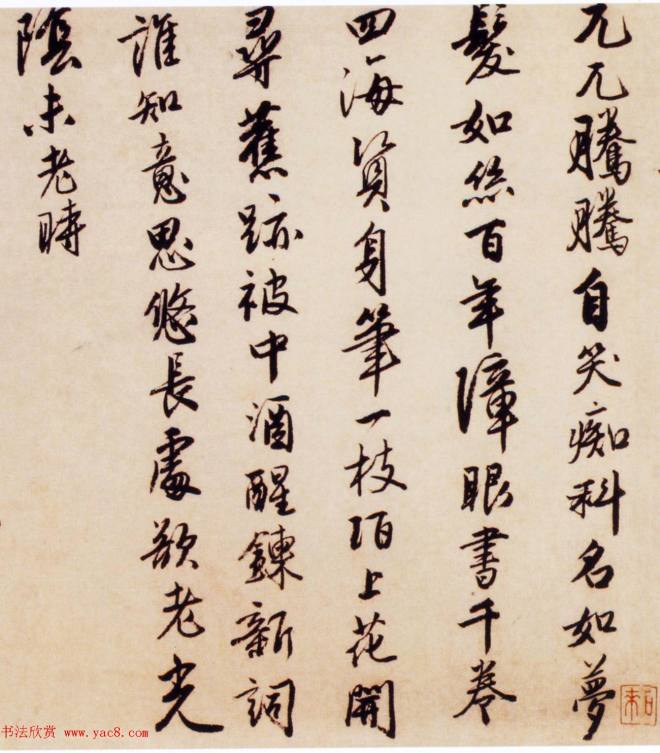 兀兀騰騰自笑痴科名如夢
髮如絲百年障眼書千卷
四海資身筆一枝陌上花開
尋舊跡被中酒醒鍊新詞
誰知意思悠長處欲老光
陰未老時
书法欣赏 www.yac8.com